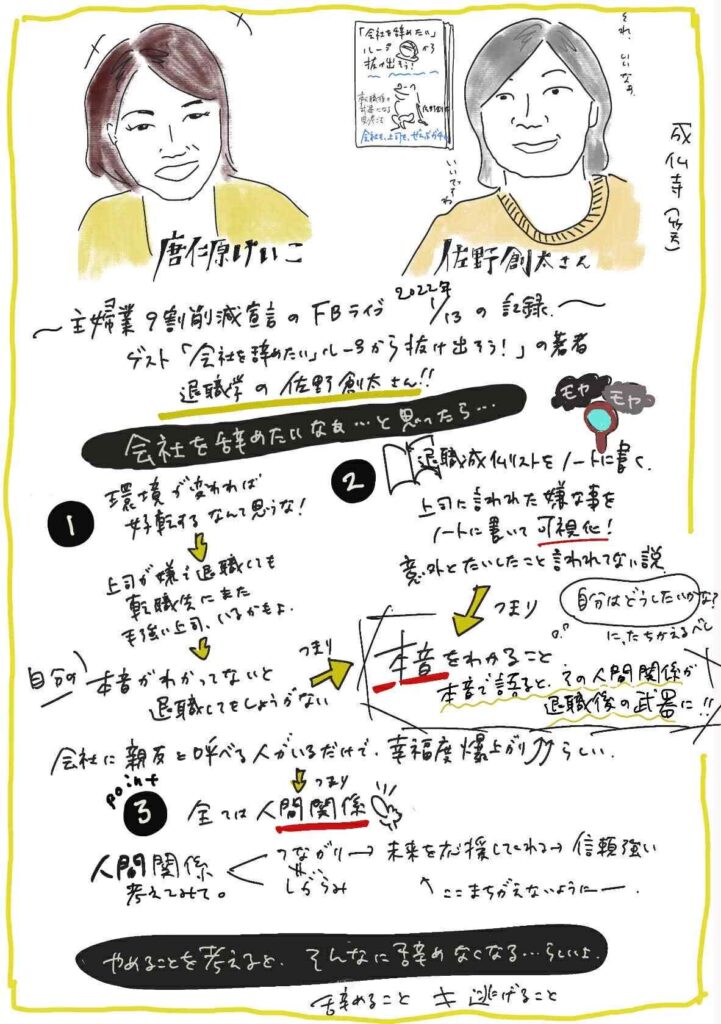 それ、いいなぁ
「会社を辞めたい」
ループから
抜け出そう!
転職後も
武器になる
思考法
佐野創太
会社を、上司を、ぜんぶ
いいですね
成仏寺(笑)
唐仁原けいこ
佐野創太さん
〜主婦業9割削減宣言のFBライブ 2022年1/13の記録〜
ゲスト「会社を辞めたい」ループから抜け出そう!」の著者
退職学の佐野創太さん!!
モヤ
モヤ
会社を辞めたいなぁ…と思ったら…
1
環境が変われば
好転するなんて思うな!
上司が嫌で退職しても
転職先にまた
手強い上司、いるかもよ.
自分の本音がわかってないと
退職してもしょうがない
つまり
2
退職成仏リストをノートに書く.
上司に言われた嫌な事を
ノートに書いて可視化!
意外とたいしたこと言われてない説.
つまり
自分はどうしたいかな?
に、たちかえるべし
本音をわかること
本音で語ると、その人間関係が
退職後の武器に!!
会社に親友と呼べる人がいるだけで、幸福度爆上がり⤴⤴らしい.
つまり
point
3
全ては人間関係
人間関係
考えてみて。
つながり→未来を応援してくれる→信頼強い
しがらみ
↑ここまちがえないようにー.
やめることを考えると、そんなに辞めなくなる…らしいよ.
辞めること≠逃げること